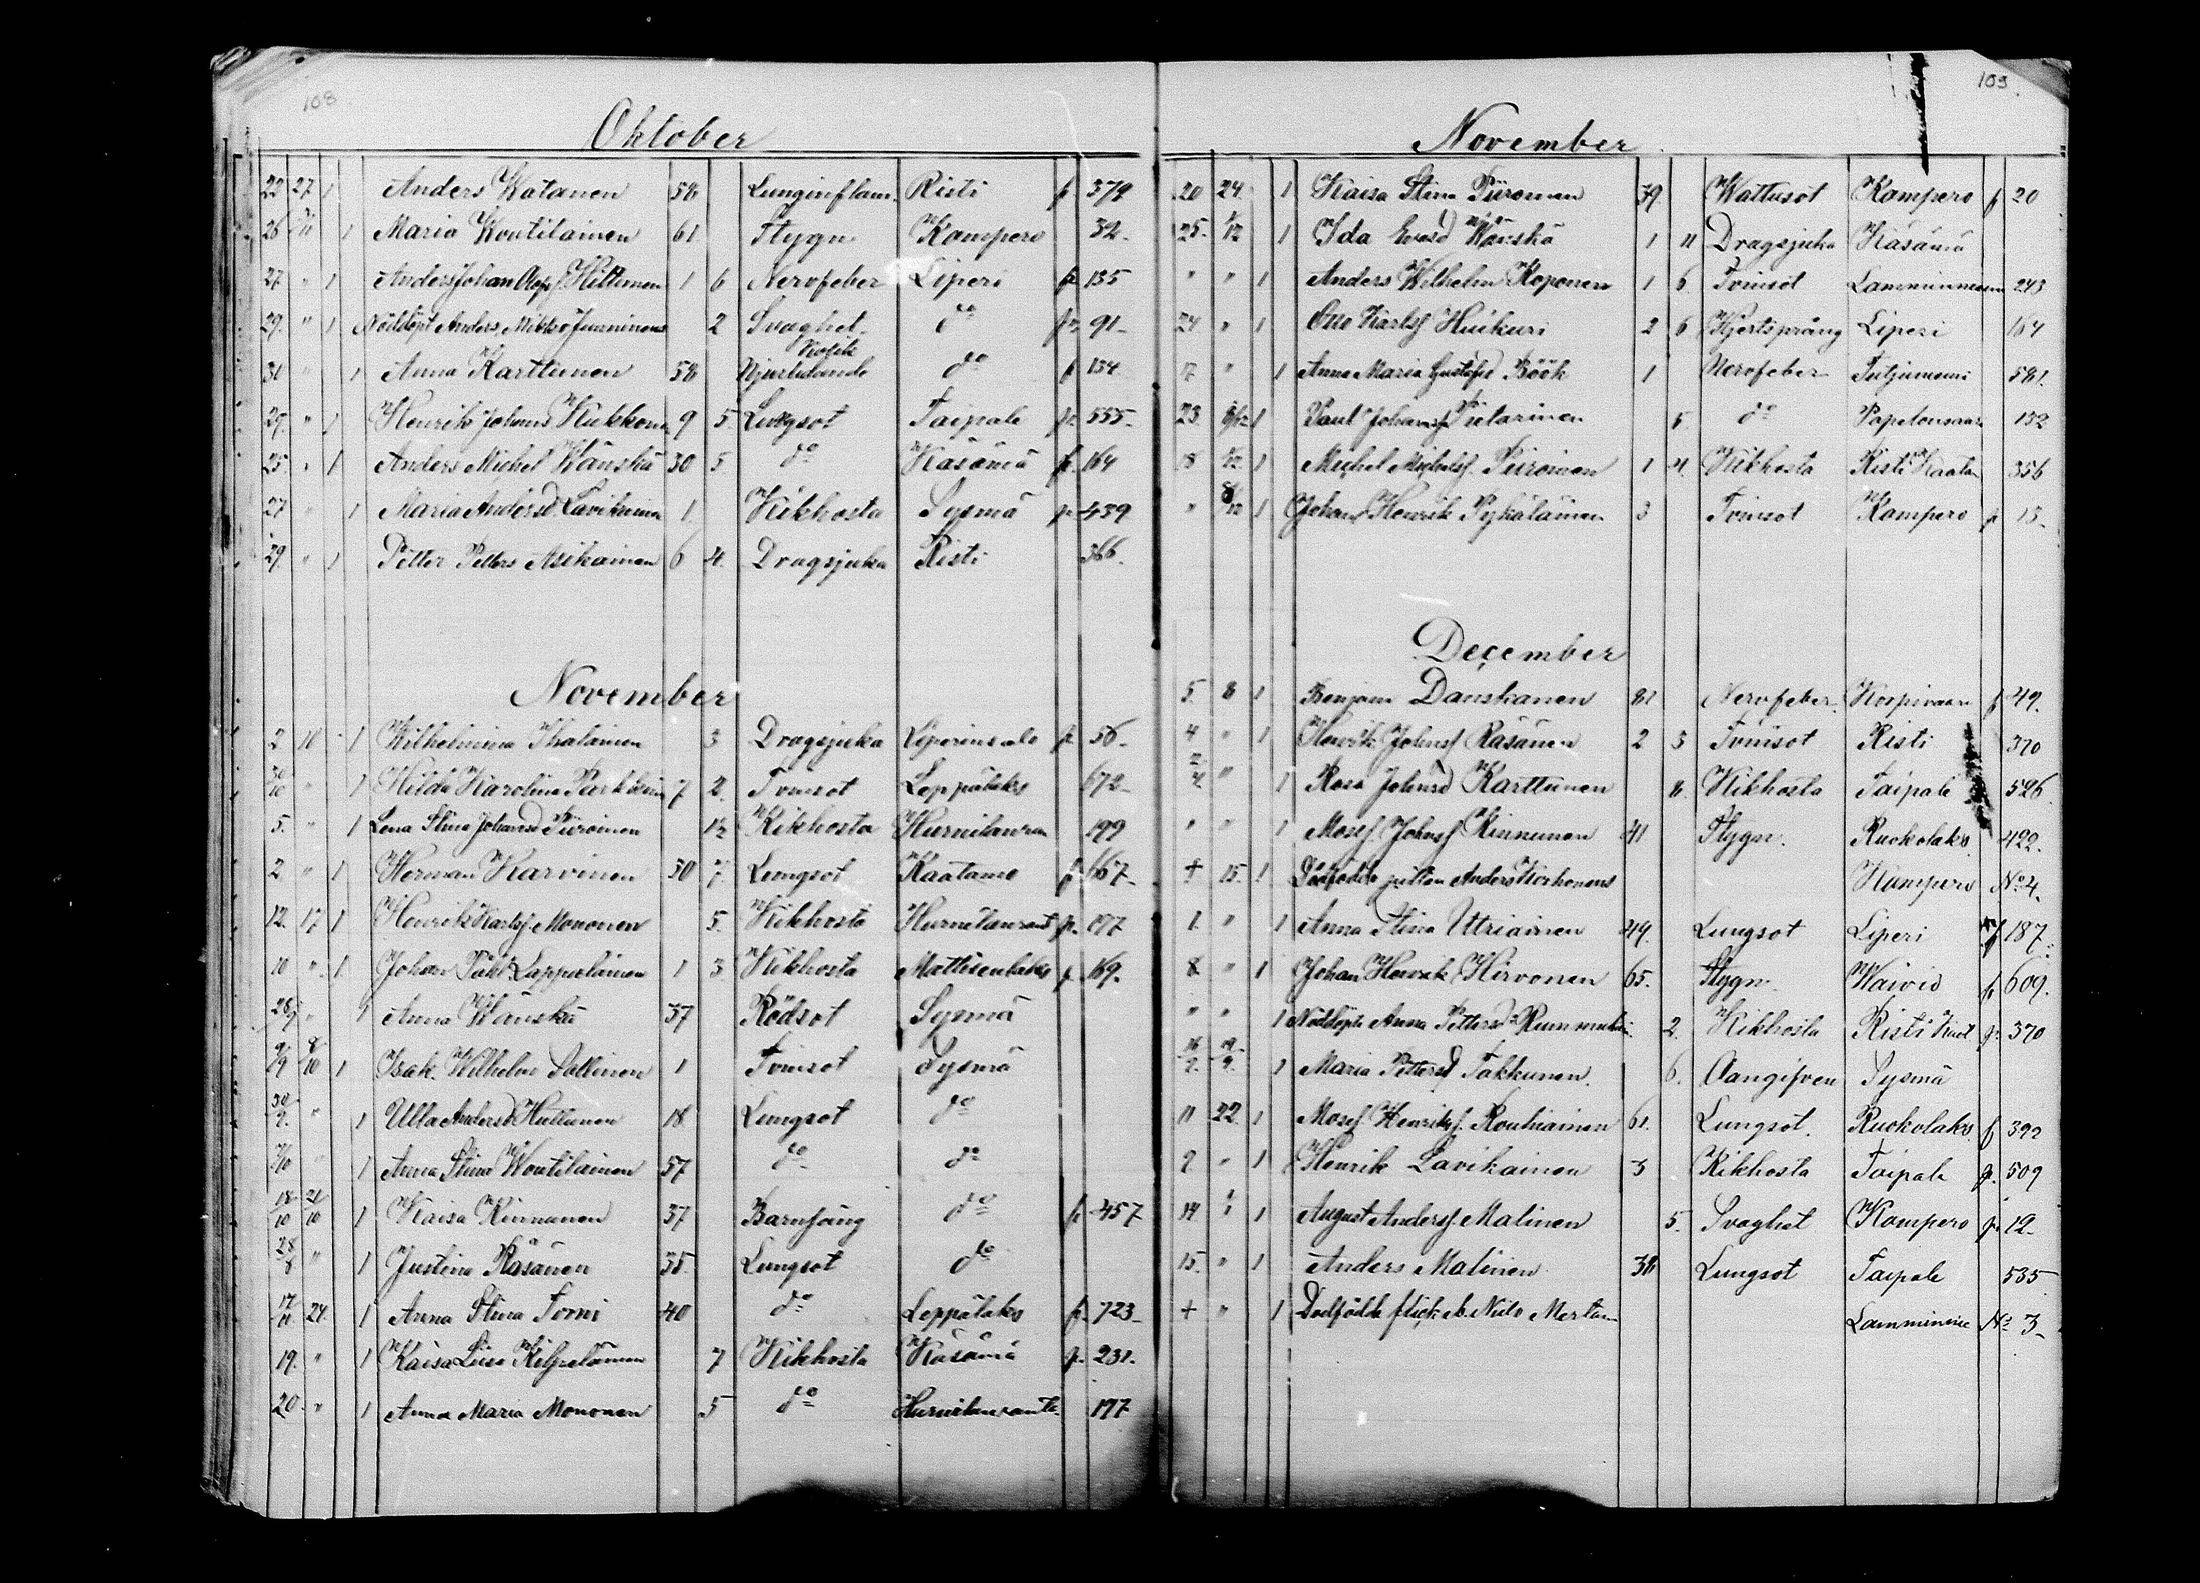 108
Oktober
22 27 1 Anders Watanen 58 Lunginflam. Risti p 379
26 1 Maria Woutilainen 61 Stygn Kompero 32.
27 " 1 Anders Johan Hiltunen 1 6 Nervfeber Liperi p 135
29. " 1 Nöddöpt Anders Mikko 2 Svaghet do p. 91
31 " 1 Anna Karttunen 58 Njurlidande Kolik do p 134
29. " 1 Henrik Johans Kukkonen 9 5 Lungsot Taipale p. 555.
25 " 1 Anders Michel Wänskä 30 5 do Käsämä p. 164
27 " 1 Maria Andersd Lavikainen 1 Kikhosta Sysmä p. 439
29. " 1 Petter Petters Asikainen 6 4. Dragsjuka Risti 366.
November
2 10 1 Wilhelmina Ikalainen 3 Dragsjuka Liperinsalo p 56
30/10 " 1 Hilda Karolina 7 2. Tvinsot Leppälaks 672
5. " 1 Lena Stina Johansd Piiroinen 1½ Kikhosta 199
2 " 1 Herman Karvinen 30 7. Lungsot Kaatamo p 667
12. 17 1 Henrik Karlsf. Mononen 5. Kikhosta p. 177
10 " 1 Johan Lappalainen 1 3 Kikhosta Mattisenlaks p 169.
28/9 " 1 Anna Wänskä 37 Rödsot Sysmä
1 Isak Wilhelm Sallinen 1 Tvinsot Sysmä
30/9. " 1 Ulla Andersd Huttunen 18 Lungsot do
" 1 Anna Stina Woutilainen 57 do do
18/10 21/10 1 Kaisa Kinnunen 37 Barnsäng do p. 457
28/8 " 1 Justina Räsänen 35. Lungsot do
17/11 24. 1 Anna Stina Torni 40 do Leppälaks p. 723
19. " 1 Kaisa Liisa 7 Kikhosta Käsämä p. 231.
20 " 1 Anna Maria Mononen 5 do 177
109.
November
20 24 1 Kaisa Stina Piiroinen 39 Wattusot Kompero f 20
25. 1/12 1 Ida Evasd Wänskä 1 11 Dragsjuka Käsämä
" " 1 Anders Wilhelm Koponen 1 6 Tvinsot Lamminniemi 243
24 " 1 Otto Karlsf Huikuri 2 6 Hjertsprång Liperi 164
17 " 1 Anna Maria Gustafsd Böök 1 Nervfeber Tutjunniemi 581.
23 1 Paul Johansf Pietarinen 5 do Papelonsaari 132
18 1 Michel Michelsf. Piiroinen 1 4. Kikhosta Risti Kaata 356
" 8/12 1 Johan Henrik Pyhäläinen 3 Tvinsot Kompero p 15
December
5. 8 1 Benjam Danskanen 81 Nervfeber Korpivaara f 49.
4 " 1 Henrik Johnsf Räsänen 2 3 Tvinsot Risti 370
" 1 Rosa Johnsd Karttunen 11. Kikhosta Taipale 526
" " 1 Mosef Johnsf Kinnunen 41 Stygn. Ruokolaks 422.
+ 15. 1 Dödfödde gossen Anders Korhonens Kompero No 4.
1. " 1 Anna Stina Utriainen 49. Lungsot Liperi f 187.
8 " 1 Johan Henrik Hirvonen 65. Stygn. Waivio f 609.
" " 1 Nöddöpta Anna Pettersd 2. Kikhosta Risti Kaat p. 370
1 Maria Pettersd Takkunen. 6. Oangifven Sysmä
11 22. 1 Mosef Henriksf. Rouhiainen 61. Lungsot. Ruokolaks f 392
9 " 1 Henrik Lavikainen 3 Kikhosta Taipale p. 509
14 " 1 August Andersf. Malinen 5. Svaghet Kompero p. 12.
15. " 1 Anders Malinen 38 Lungsot Taipale 535
+ " 1 Dödfödda flick b. Niilo Lamminnie No 3